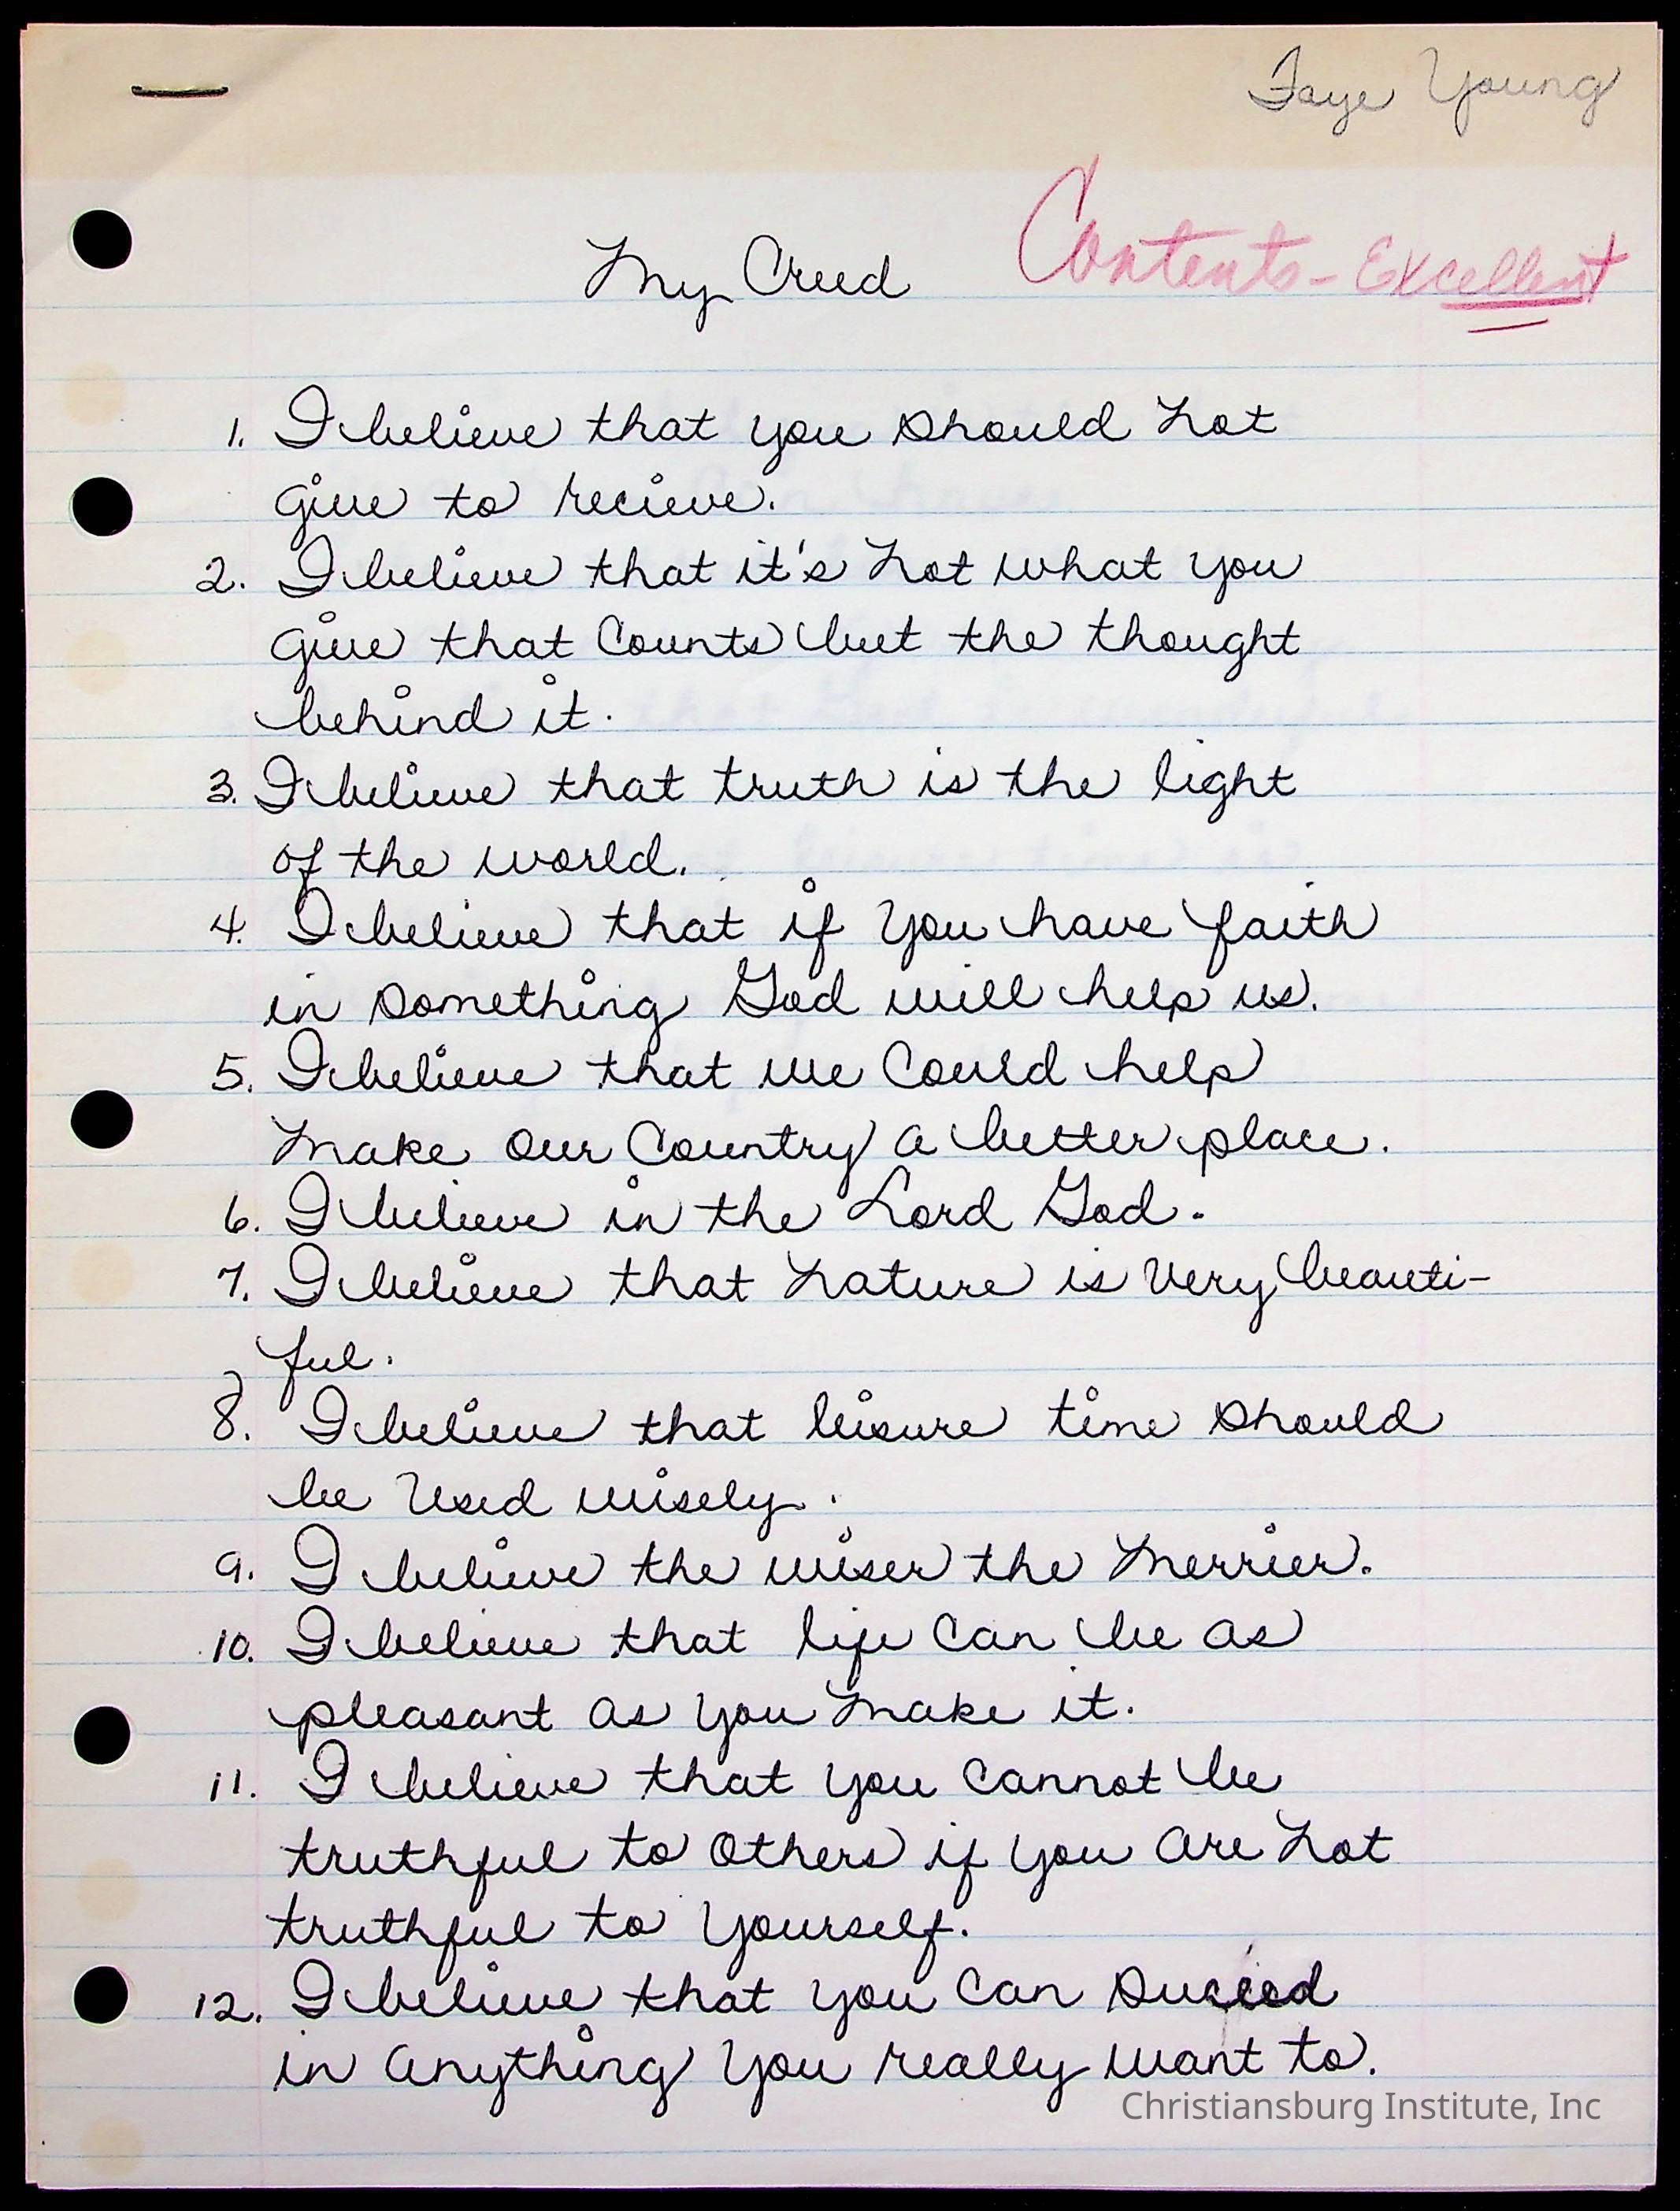 Faye Young
My Creed Contents - Excellent
1. I believe that you should not
give to recieve.
2. I believe that it's not what you
give that counts but the thought
behind it.
3. I believe that truth is the light
of the world.
4. I believe that if you have faith
in something God will help us.
5. I believe that we could help
make our Country a better place.
6. I believe in the Lord God.
7. I believe that nature is very beauti-
ful.
8. I believe that leisure time should
be used wisely.
9. I believe the wiser the merrier.
10. I believe that life can be as
pleasant as you make it.
11. I believe that you cannot be
truthful to others if you are not
truthful to yourself.
12. I believe that you can suceed
in anything you really want to.
Christiansburg Institute, Inc